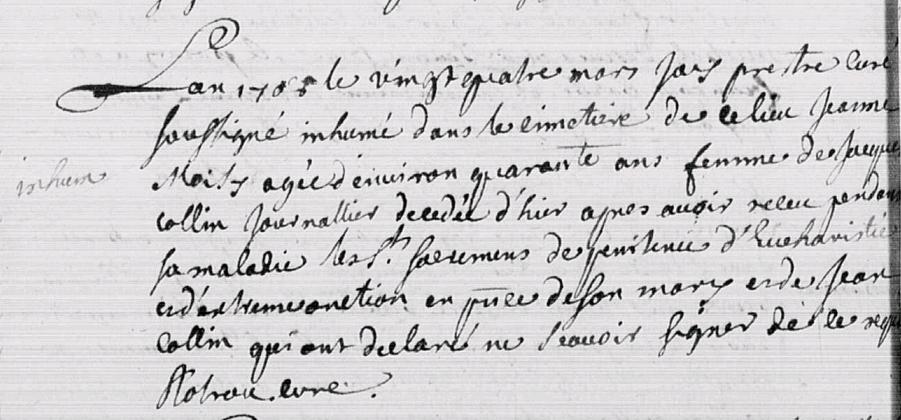 Lan 1705 le vingt quatre mars Jay prestre curé
soussigné inhumé dans le cimetiere de ce lieu Jeanne
agée d'environ quarante ans femme de Jacque
inhum
collin Journallier decedée d'hier apres avoir receu pendant
sa maladie les Sts sacremens de penitence d'Eucharistie
et d'extreme onction en pnce de son mary et de Jean
collin qui ont declaré ne scavoir signer de ce
curé.